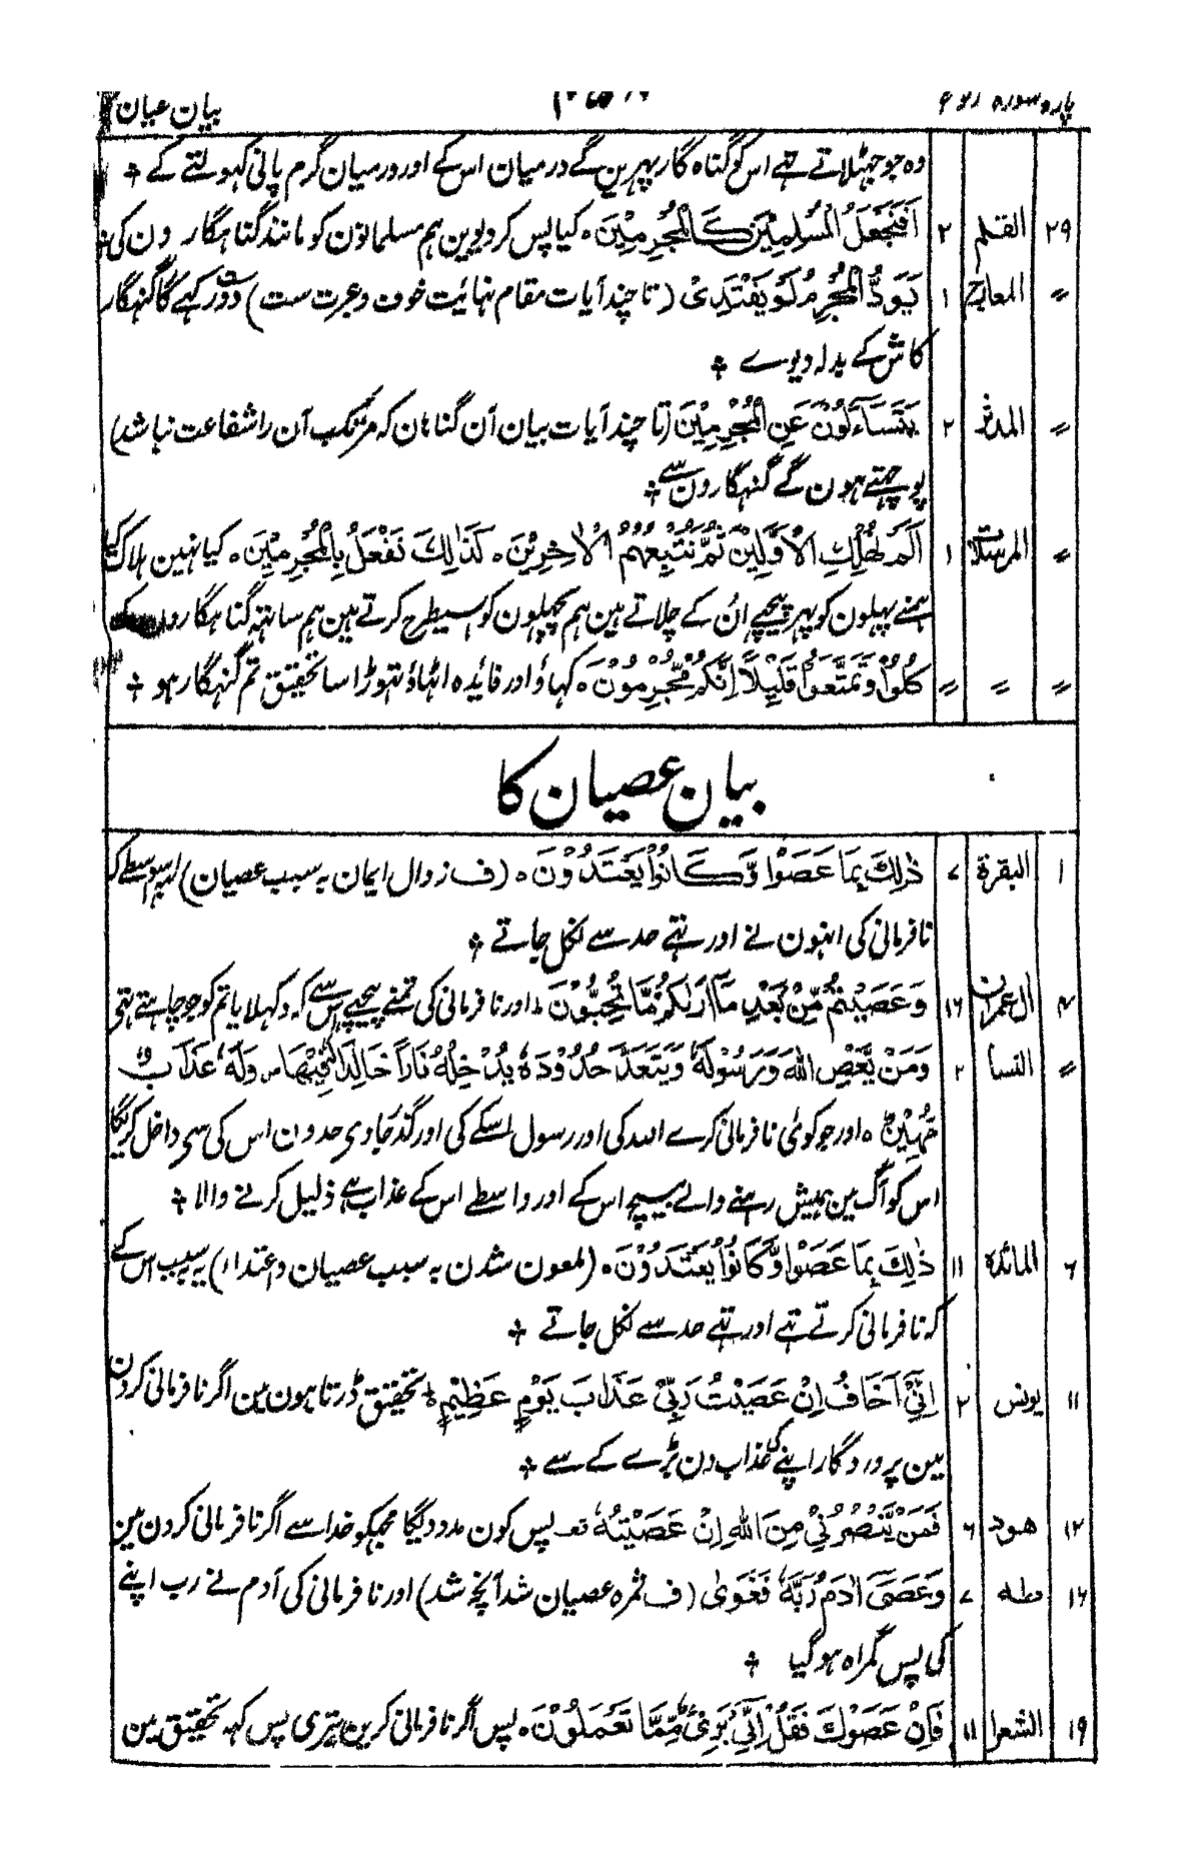 پارہ سورہ رکوع بیان عیان
وہ جو جھٹلاتے تہے اس کو گناہ گار پہرین گے درمیان اس کے اور درمیان گرم پانی کہولتے کے ۞
۲۹ القلم ۲ اَفَنَجْعَلُ الْمُسْلِمِيْنَ كَالْمُجْرِمِيْنَ ہ کیا پس کر دیوین ہم مسلمانون کو مانند گناہگار ون کی
〃 المعارج ۱ يَوَدُّ الْمُجْرِمُ لَوْ يَفْتَدِىْ (تا چند آیات مقام نہائیت خوف و عبرت ست) دوست رکہے گا گنہگار
کاش کے بدلہ دیوے ۞
〃 المدثر ۲ يَتَسَآءَلُوْنَ عَنِ الْمُجْرِمِيْنَ (تا چند آیات بیان آن گناہان کہ مرتکب آن را شفاعت نباشد)
پوچہتے ہون گے گنہگارون سے ۞
〃 المرسلات ۱ اَلَمْ نُهْلِكِ الْاَوَّلِيْنَ ثُمَّ نُتْبِعُهُمُ الْاٰخِرِيْنَ ہ كَذٰلِكَ نَفْعَلُ بِالْمُجْرِمِيْنَ ہ کیا نہین ہلاک کیا
ہمنے پہلون کو پہر پیچہے اُن کے چلاتے ہین ہم پچہلون کو اسیطرح کرتے ہین ہم ساتہہ گناہگارون
〃 〃 〃 كُلُوْا وَتَمَتَّعُوْا قَلِيْلًا اِنَّكُمْ مُّجْرِمُوْنَ ہ کہاؤ اور فائدہ اٹہاؤ تہوڑا سا تحقیق تم گنہگار ہو ۞
بیان عصیان کا
۱ البقرة ۷ ذٰلِكَ بِمَا عَصَوْا وَّكَانُوْا يَعْتَدُوْنَ ہ (ف زوال ایمان بہ سبب عصیان) اسیواسطے کہ
نافرمانی کی انہون نے اور تہے حد سے نکل جاتے ۞
۴ اٰل عمران ۱۶ وَعَصَيْتُمْ مِّنْ بَعْدِ مَآ اَرٰىكُمْ مَّا تُحِبُّوْنَ ہ اور نافرمانی کی تمنے پیچہے اس سے کہ دکہلایا تم کو جو چاہتے تہی
〃 النسآ ۲ وَمَنْ يَّعْصِ اللّٰهَ وَرَسُوْلَهٗ وَيَتَعَدَّ حُدُوْدَهٗ يُدْخِلْهُ نَارًا خَالِدًا فِيْهَا ص وَلَهٗ عَذَابٌ
مُّهِيْنٌ ہ اور جو کوئی نافرمانی کرے اسد کی اور رسول اسکے کی اور گذر جاوی حدون اس کی سی داخل کریگا
اس کو آگ مین ہمیش رہنے والے بیچ اس کے اور واسطے اس کے عذاب ہے ذلیل کرنے والا ۞
۶ المائدة ۱۱ ذٰلِكَ بِمَا عَصَوْا وَّكَانُوْا يَعْتَدُوْنَ ہ (ملعون شدن بہ سبب عصیان و اعتداء) یہ سبب اس کے
کہ نافرمانی کرتے تہے اور تہے حد سے نکل جاتے ۞
۱۱ یونس ۲ اِنِّىْٓ اَخَافُ اِنْ عَصَيْتُ رَبِّىْ عَذَابَ يَوْمٍ عَظِيْمٍ ہ تحقیق ڈرتا ہون مین اگر نافرمانی کرون
مین پروردگار اپنے کی عذاب دن بڑے کے سے ۞
۱۲ ھود ۶ فَمَنْ يَّنْصُرُنِىْ مِنَ اللّٰهِ اِنْ عَصَيْتُهٗ قف پس کون مدد دیگا مجہکو خدا سے اگر نافرمانی کرون مین
۱۶ طہ ۷ وَعَصٰىٓ اٰدَمُ رَبَّهٗ فَغَوٰى (ف ثمرہ عصیان شد آنچہ شد) اور نافرمانی کی آدم نے رب اپنے
کی پس گمراہ ہو گیا ۞
۱۹ الشعرا ۱۱ فَاِنْ عَصَوْكَ فَقُلْ اِنِّىْ بَرِىْٓءٌ مِّمَّا تَعْمَلُوْنَ ہ پس اگر نافرمانی کرین تیری پس کہہ تحقیق مین